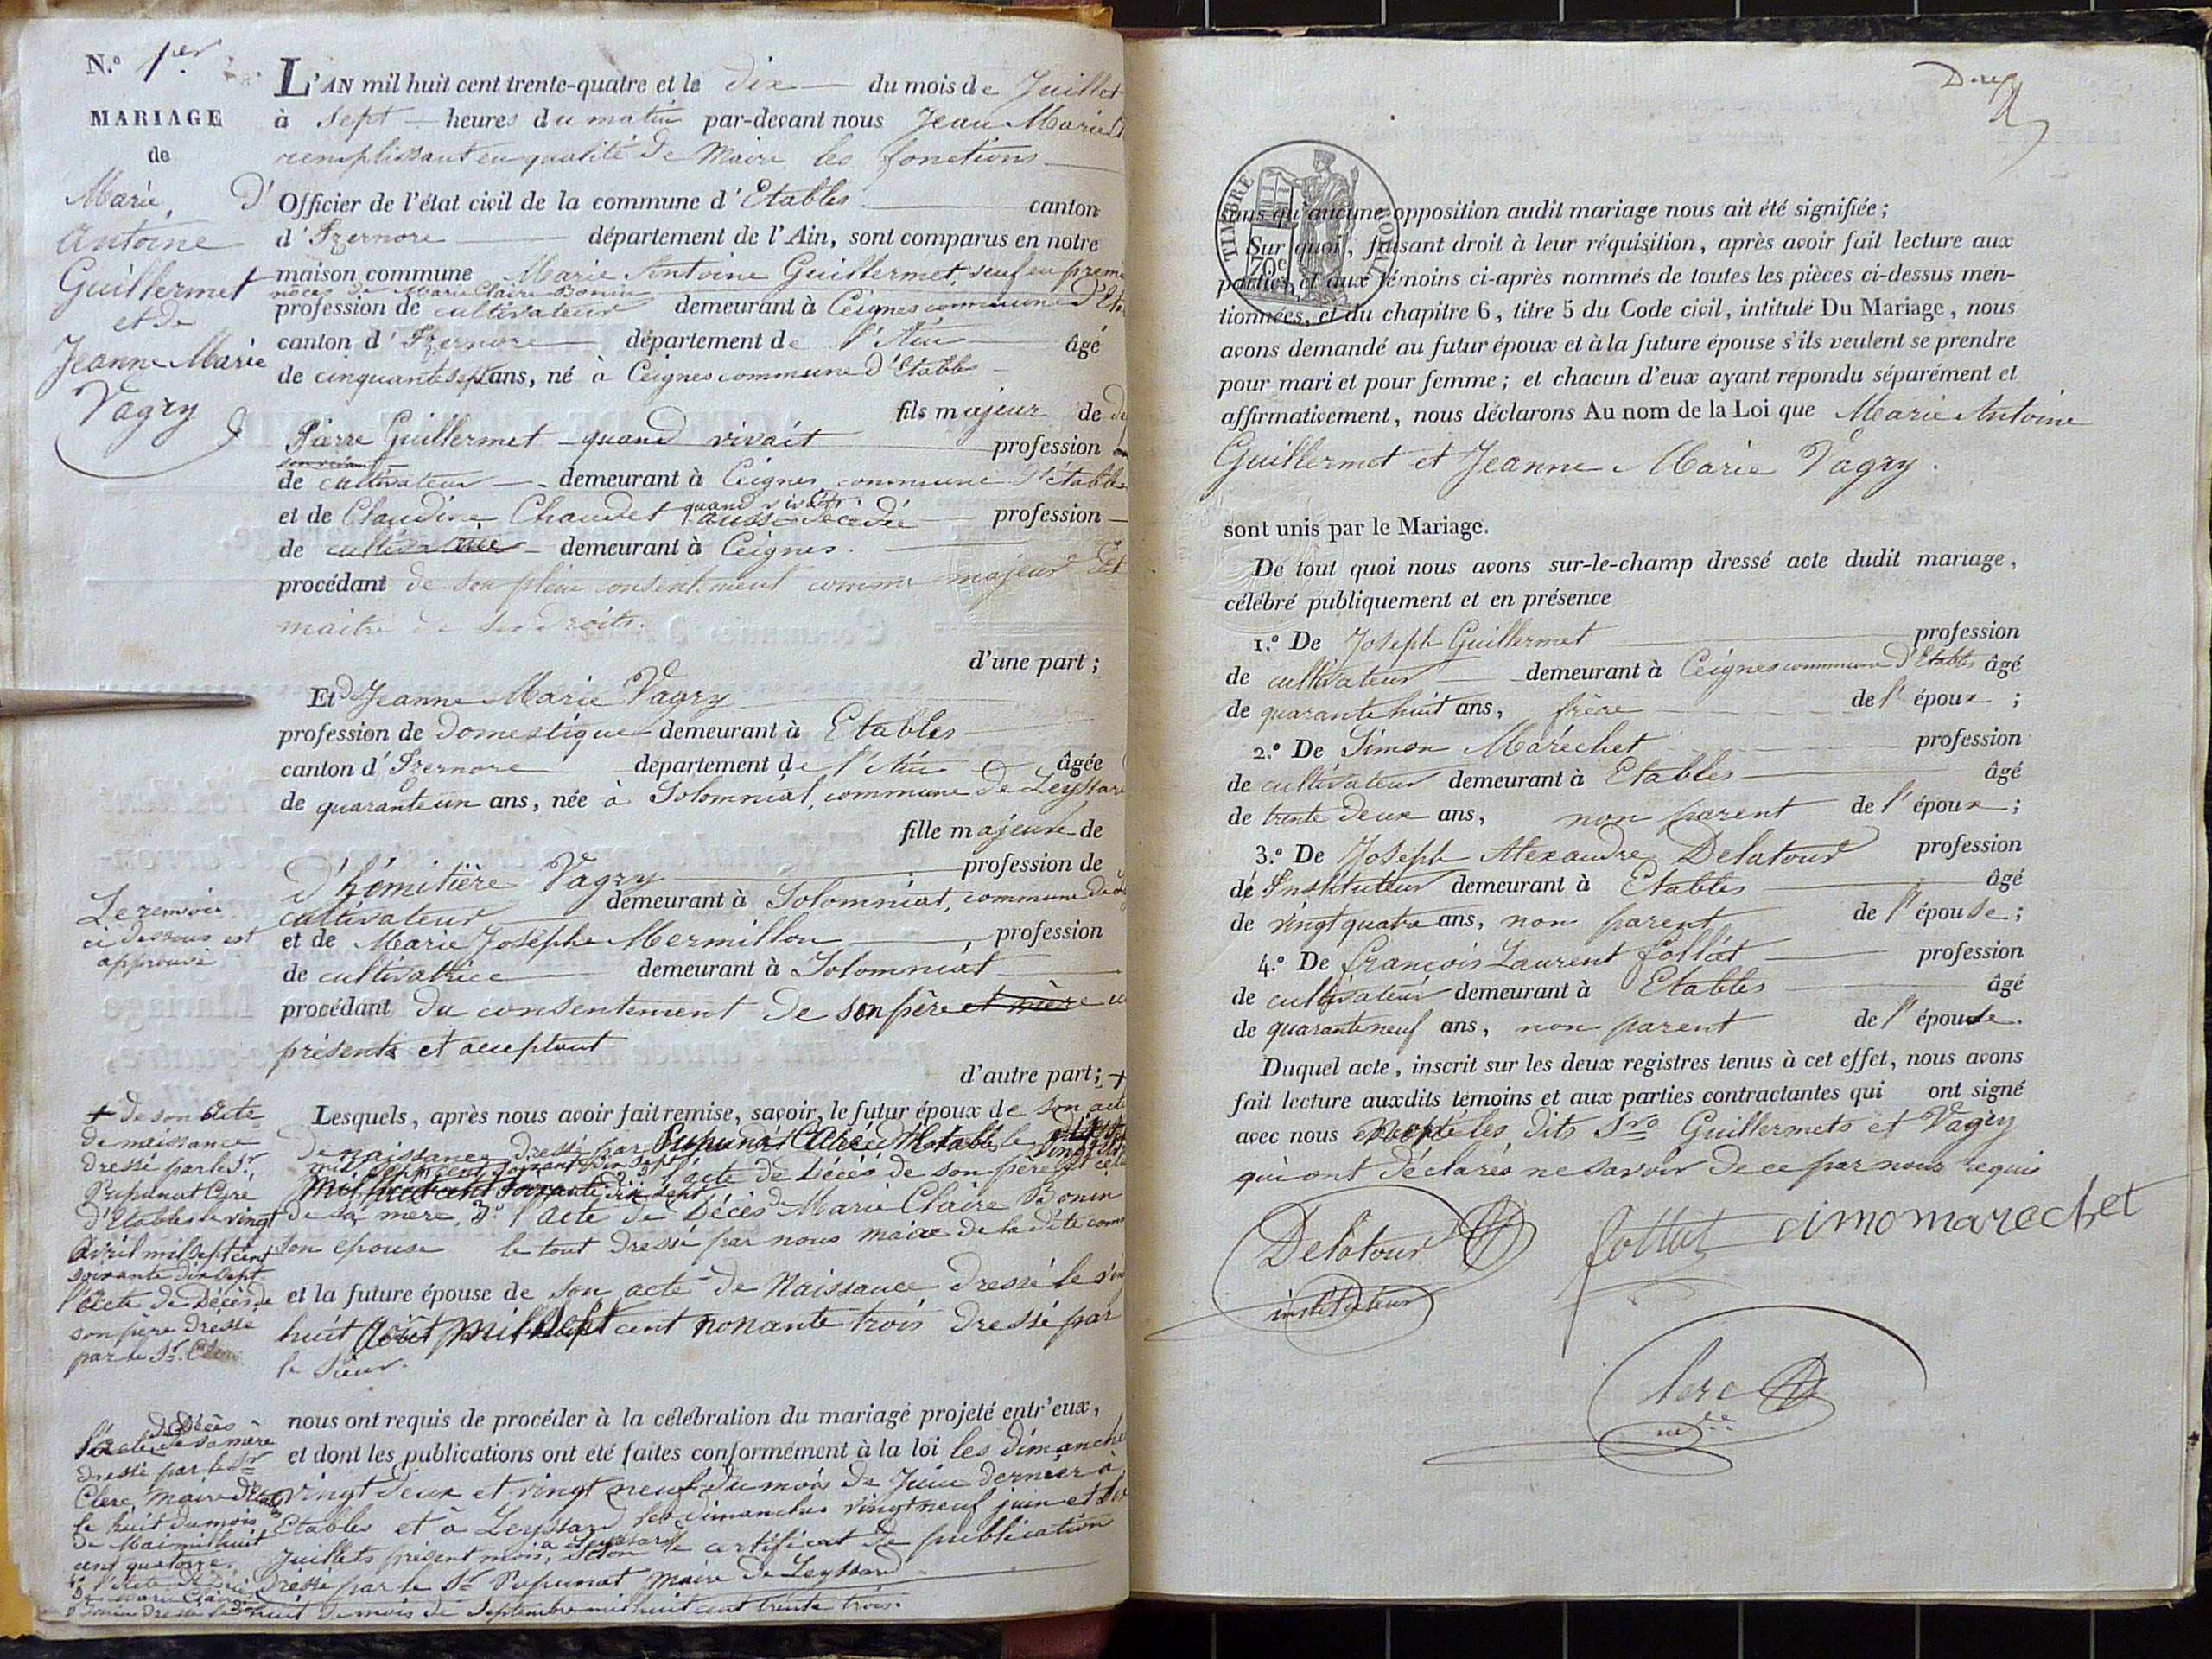 N.º 1er
MARIAGE
de
Marie
Antoine
Guillermet
et de
Jeanne Marie
Vagry
L'AN mil huit cent trente-quatre et le dix du mois de Juillet
à sept heures du matin par-devant nous Jean Marie
remplissant en qualité de Maire les fonctions
D' Officier de l'état civil de la commune d'Etables canton
d'Izernore département de l'Ain, sont comparus en notre
maison commune Marie Antoine Guillermet, veuf en prem
nôces de Marie Claire Bonin
profession de cultivateur demeurant à Ceignes commune d'Et
canton d'Izernore département de l'Ain âgé
de cinquante sept ans, né à Ceignes commune d'Etables
fils majeur de
Pierre Guillermet quand vivait profession
son vivant
de cultivateur demeurant à Ceignes commune d'étables
quand vivait
et de Claudine Chaudet aussi décédée profession
de cultivatrice demeurant à Ceignes.
procédant de son plein consentement comme majeur et
maitre de ses droits.
d'une part;
Et Jeanne Marie Vagry
profession de domestique demeurant à Etables
canton d'Izernore département de l'Ain âgée
de quarante un ans, née à Solomniat, commune de Leyssar
fille majeure de
d'hémitière Vagry profession de
cultivateur demeurant à Solomniat, commune de
et de Marie Josephe Mermillon, profession
de cultivatrice demeurant à Solomniat
procédant du consentement de son père et mère
présents et acceptant
d'autre part; +
Le renvoie
ci dessous est
approuvé
Lesquels, après nous avoir fait remise, savoir, le futur époux de son acte
de naissance dressé par Pupunat Curé d'Etables le vingt
mil sept cent soixante dix sept l'acte de Décès de son père et cel
mil sept cent soixante dix sept
de sa mère, 3.º l'acte de Décès Marie Claire Bonin
son epouse le tout dressé par nous maire de la dite com
et la future épouse de son acte de Naissance dressé le vin
huit Août mil sept cent nonante trois dressé par
le Sieur.
nous ont requis de procéder à la célébration du mariage projeté entr'eux,
et dont les publications ont été faites conformément à la loi les dimanche
vingt deux et vingt neuf du mois de Juin dernier à
Etables et à Leyssard les dimanches vingt neuf juin et six
Juillets présent mois, à Leyssard selon le certificat de publication
dressé par le Sr Pupunat Maire de Leyssard
+ de son acte
de naissance
dressé par le Sr
Pupunat Curé
d'Etables le vingt
Avril mil sept cent
soixante dix sept
l'acte de Décès de
son père dressé
par le Sr. Clerc
de Décès
l'acte de sa mère
dressé par le Sr
Clerc, maire d'Etables
le huit du mois
de Mai mil huit
cent quatorze.
l'acte de Décès
de Marie Claire
Bonin dressé le dix huit du mois de Septembre mil huit cent trente trois.
sans qu'aucune opposition audit mariage nous ait été signifiée;
TIMBRE ROYAL
70c
Sur quoi, faisant droit à leur réquisition, après avoir fait lecture aux
parties, et aux témoins ci-après nommés de toutes les pièces ci-dessus men-
tionnées, et du chapitre 6, titre 5 du Code civil, intitulé Du Mariage, nous
avons demandé au futur époux et à la future épouse s'ils veulent se prendre
pour mari et pour femme; et chacun d'eux ayant répondu séparément et
affirmativement, nous déclarons Au nom de la Loi que Marie Antoine
Guillermet et Jeanne Marie Vagry.
sont unis par le Mariage.
De tout quoi nous avons sur-le-champ dressé acte dudit mariage,
célébré publiquement et en présence
1.º De Joseph Guillermet profession
de cultivateur demeurant à Ceignes commune d'Etables âgé
de quarante huit ans, frère de l'époux;
2.º De Simon Maréchet profession
de cultivateur demeurant à Etables âgé
de trente deux ans, non parent de l'époux;
3.º De Joseph Alexandre Delatour profession
de Instituteur demeurant à Etables âgé
de vingt quatre ans, non parent de l'épouse;
4.º De François Laurent follïet profession
de cultivateur demeurant à Etables âgé
de quarante neuf ans, non parent de l'épouse.
Duquel acte, inscrit sur les deux registres tenus à cet effet, nous avons
fait lecture auxdits témoins et aux parties contractantes qui ont signé
avec nous excepté les dits Srs Guillermets et Vagry
qui ont déclarés ne savoir de ce par nous requis
Delatour
instituteur
simo marechet
Clerc